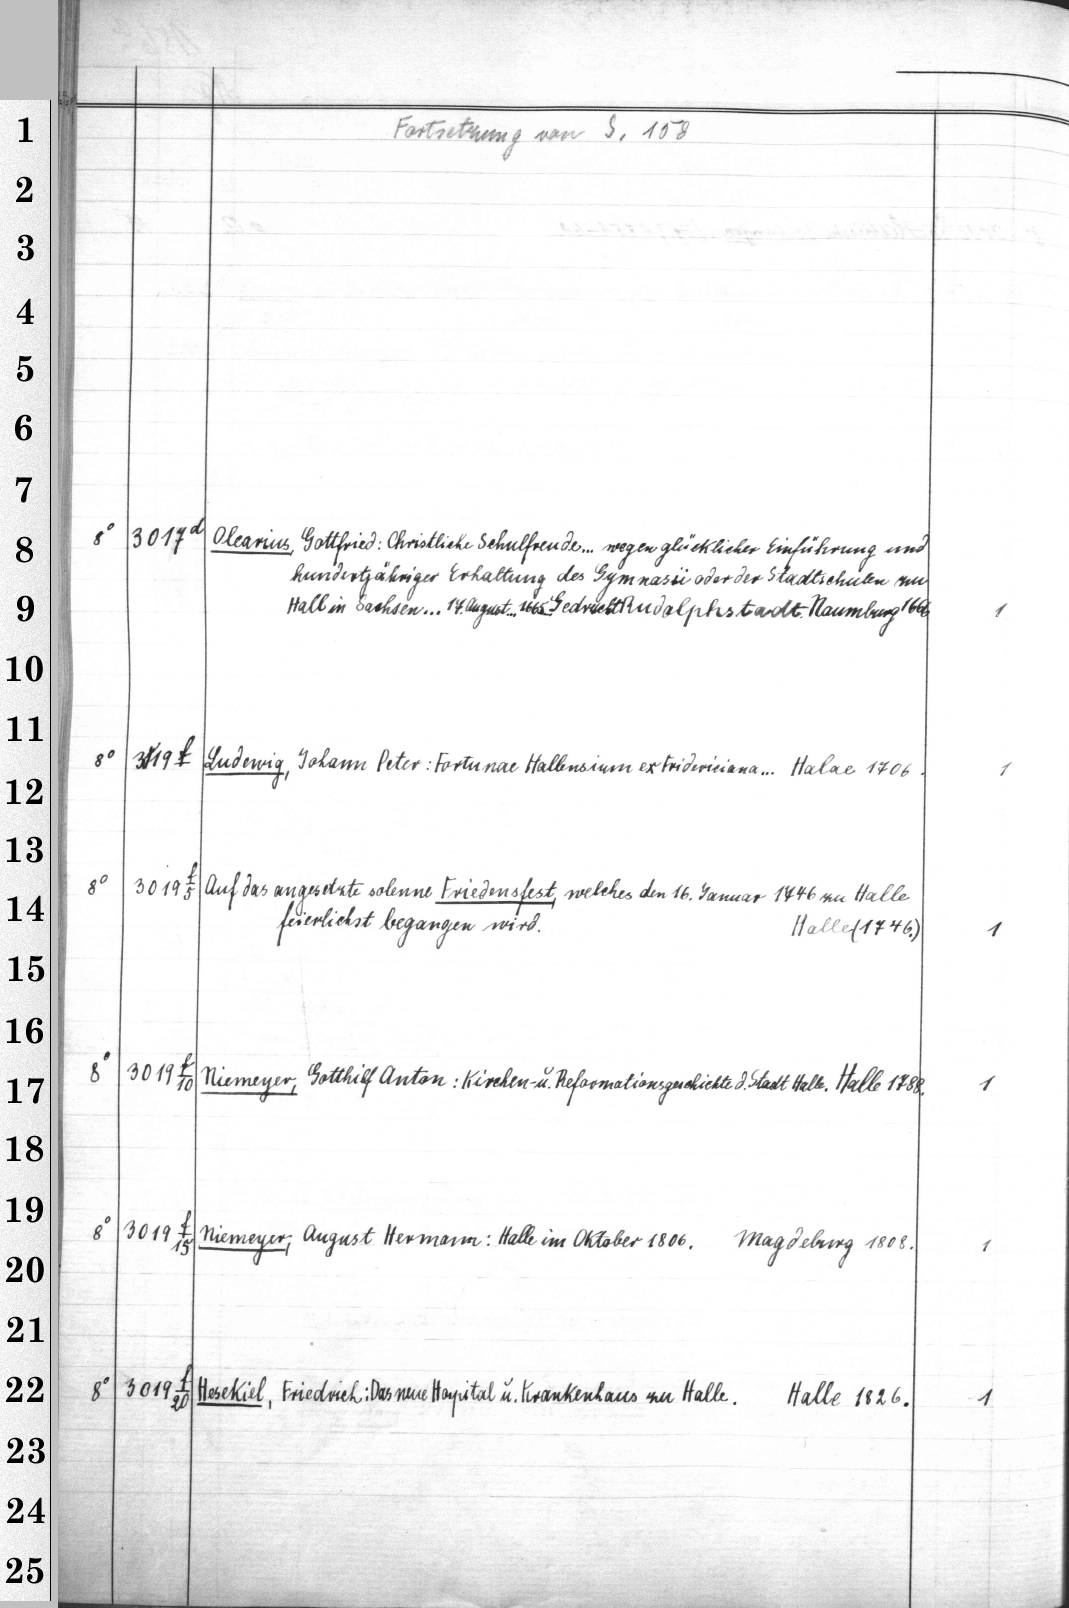 Fortsetzung von S. 158
1
2
3
4
5
6
7
8
8° 3017d Olearius, Gottfried: Christliche Schulfreude... wegen glücklicher Einführung und
hundertjähriger Erhaltung des Gymnasii oder der Stadtschulen zu
9
Hall in Sachsen... 17. August... 1665. Gedruckt Rudolphstadt. Naumburg 1666 1
10
11
8° 3019 f Ludewig, Johann Peter: Fortunae Hallensium ex Fridericiana... Halae 1706. 1
12
13
8° 3019 f/5 Auf das angesetzte solenne Friedensfest, welches den 16. Januar 1746 zu Halle
14
feierlichst begangen wird. Halle (1746.) 1
15
16
17
8° 3019 f/10 Niemeyer, Gotthilf Anton: Kirchen- u. Reformationsgeschichte d. Stadt Halle. Halle 1788. 1
18
19
8° 3019 f/15 Niemeyer, August Hermann: Halle im Oktober 1806. Magdeburg 1808. 1
20
21
22
8° 3019 f/20 Hesekiel, Friedrich: Das neue Hospital u. Krankenhaus zu Halle. Halle 1826. 1
23
24
25